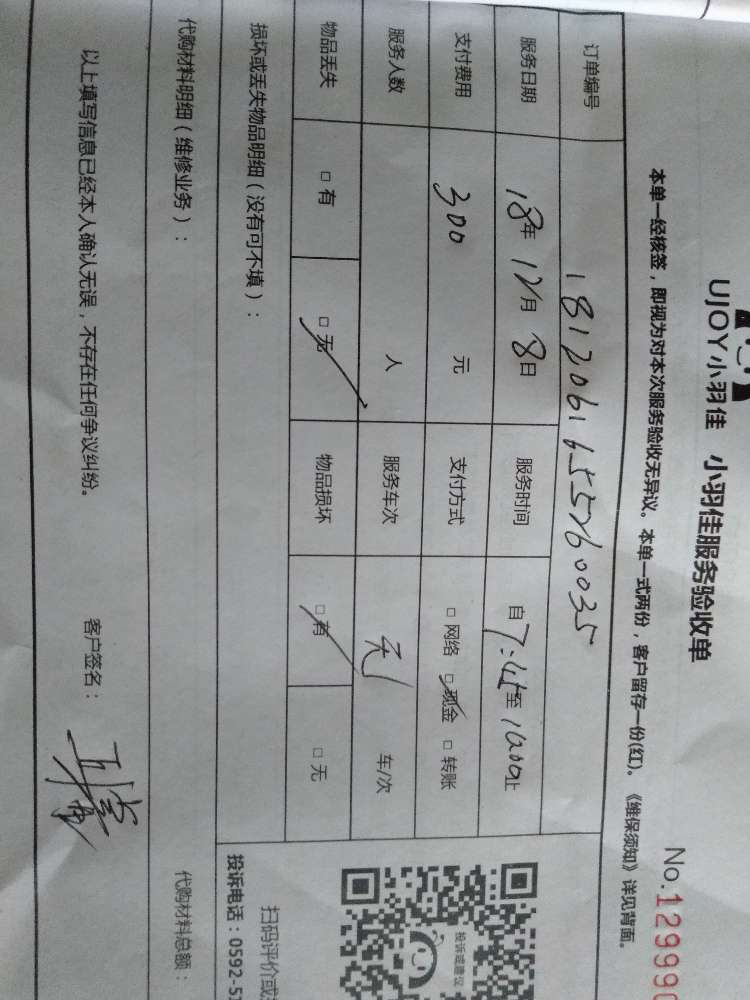 UJOY小羽佳 小羽佳服务验收单
No.129990
本单一经核签，即视为对本次服务验收无异议。本单一式两份，客户留存一份(红)。《维保须知》详见背面。
订单编号 1812061655260035
服务日期 18年 12月 8日 服务时间 自7:45至1200止
支付费用 300 元 支付方式 □ 网络 □ 现金 □ 转账
服务人数 人 服务车次 无 车/次
物品丢失 □ 有 □ 无 物品损坏 □ 有 □ 无
投诉或建议
扫码评价或
投诉电话：0592-5
损坏或丢失物品明细（没有可不填）：
代购材料明细（维修业务）： 代购材料总额：
以上填写信息已经本人确认无误，不存在任何争议纠纷。 客户签名：